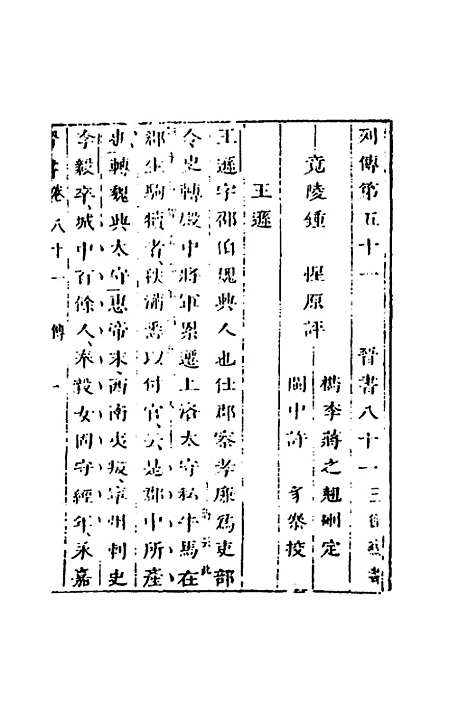 列傳第五十一　晉書八十一
竟陵鍾　惺原評　檇李蔣之翹刪定
閩中許　豸
王遜
王遜字邵伯魏興人也仕郡察孝廉爲吏部
令史轉殿中將軍累遷上洛太守私牛馬在
郡生駒犢者秩滿悉以付官云是郡中所產
也轉魏興太守惠帝末西南夷叛寧州刺史
李毅卒城中百餘人奉毅女固守經年永嘉
晉書卷八十一　傳　一